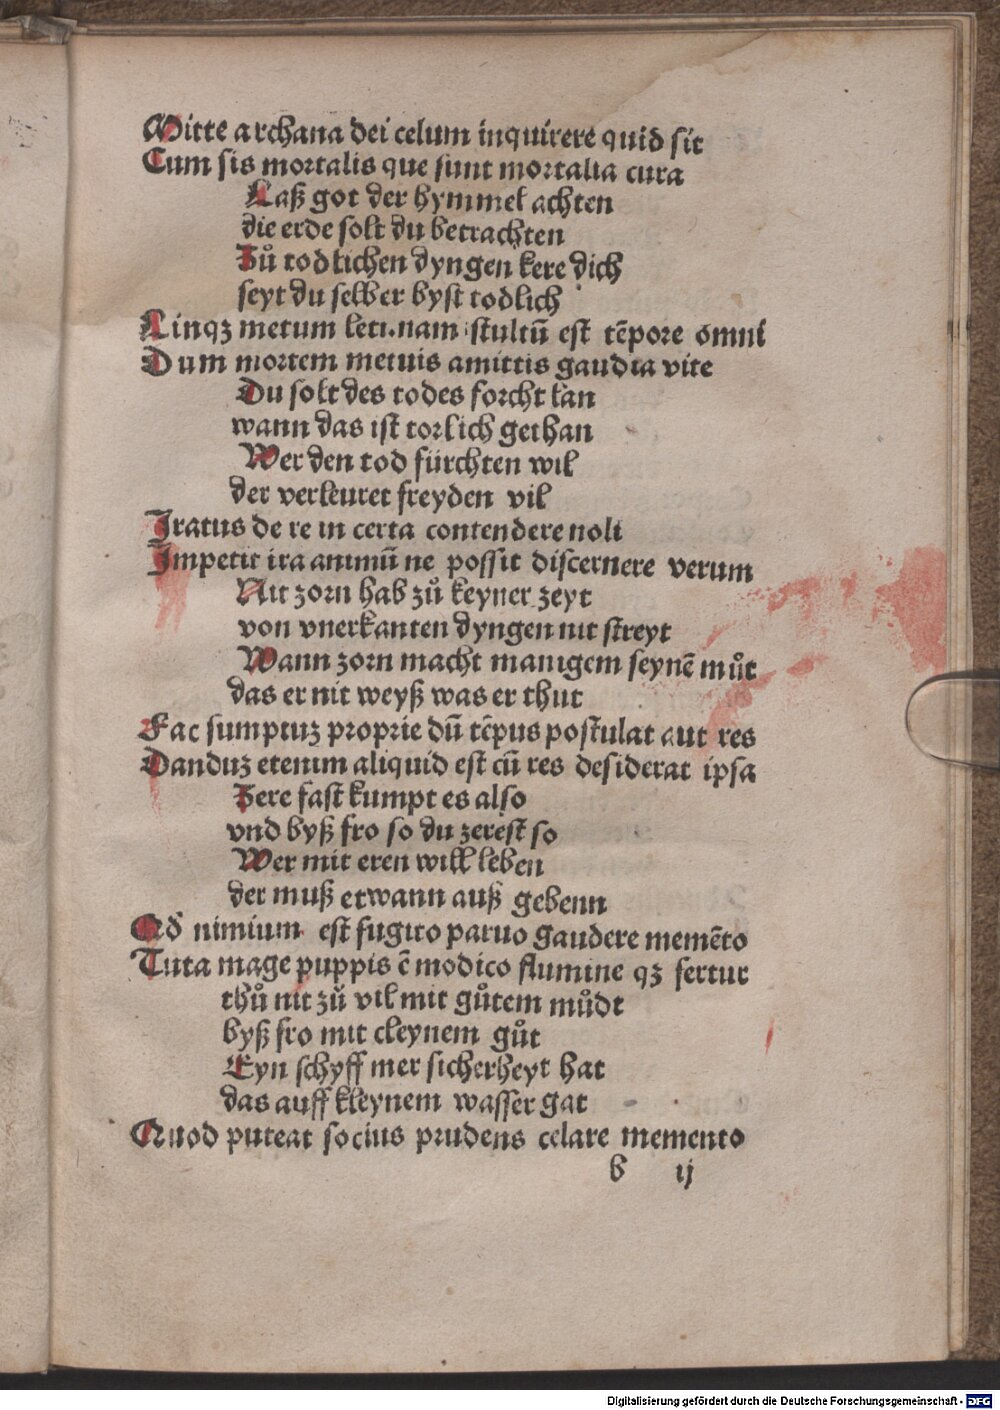 Mitte archana dei celum inquirere quid sit
Cum sis mortalis que sunt mortalia cura
Laß got der hymmel achten
die erde solt du betrachten
Zů todlichen dyngen kere dich
seyt du selber byst todlich
Linqꝫ metum leti.nam stultū est tēpore omni
Dum mortem metuis amittis gaudia vite
Du solt des todes forcht lan
wann das ist torlich gethan
Wer den tod fürchten wil
der verleuret freyden vil
Iratus de re in certa contendere noli
Impetit ira animū ne possit discernere verum
Nit zorn hab zů keyner zeyt
von vnerkanten dyngen nit streyt
Wann zorn macht manigem seynē můt
das er nit weyß was er thut
Fac sumptuꝫ proprie dū tēpus postulat aut res
Danduꝫ etenim aliquid est cū res desiderat ipsa
Zere fast kumpt es also
vnd byß fro so du zerest so
Wer mit eren will leben
der muß etwann auß gebenn
Qđ nimium est fugito paruo gaudere memēto
Tuta mage puppis ē modico flumine qꝫ fertur
thů nit zů vil mit gůtem můdt
byß fro mit cleynem gůt
Eyn schyff mer sicherheyt hat
das auff kleynem wasser gat
Quod puteat socius prudens celare memento
b ij
Digitalisierung gefördert durch die Deutsche Forschungsgemeinschaft - DFG